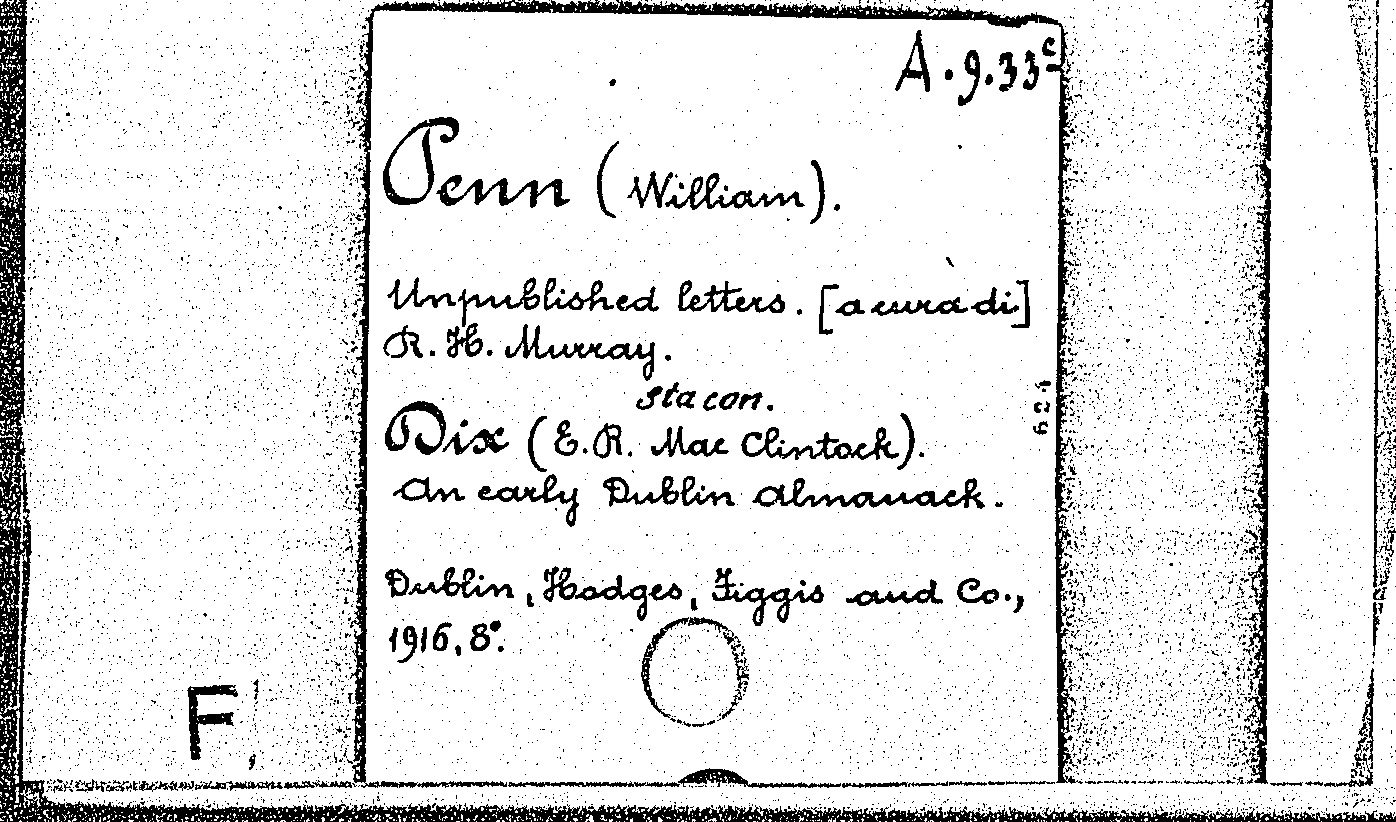 A.9.33c
Penn (William).
Unpublished letters. [a cura di]
R. H. Murray.
sta con.
Dix (E. R. Mac Clintock).
An early Dublin Almanack.
Dublin, Hodges, Figgis and Co.,
1916, 8°.
F